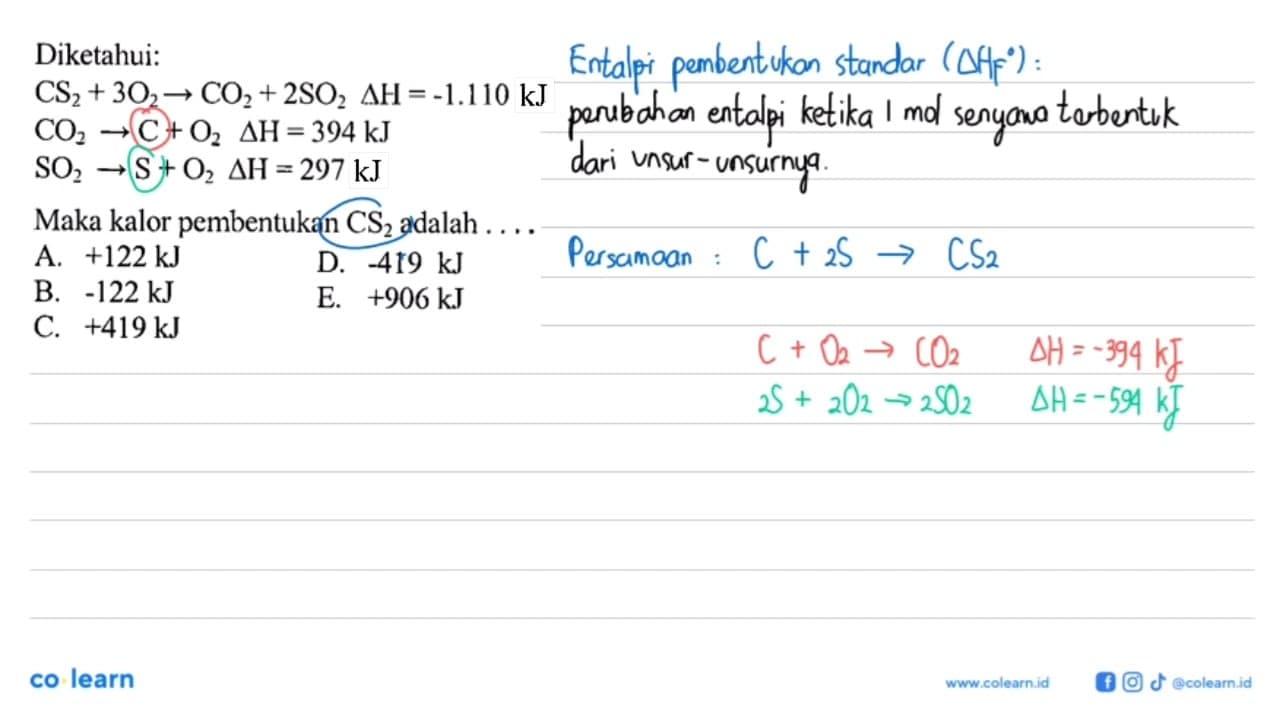 Diketahui:
CS₂ + 3O₂ → CO₂ + 2SO₂ ΔH = -1.110 kJ
CO₂ → C + O₂ ΔH = 394 kJ
SO₂ → S + O₂ ΔH = 297 kJ
Maka kalor pembentukan CS₂ adalah ....
A. +122 kJ
B. -122 kJ
C. +419 kJ
D. -419 kJ
E. +906 kJ
Entalpi pembentukan standar (ΔHf°) :
perubahan entalpi ketika 1 mol senyawa terbentuk
dari unsur-unsurnya.
Persamaan : C + 2S → CS₂
C + O₂ → CO₂ ΔH = -394 kJ
2S + 2O₂ → 2SO₂ ΔH = -594 kJ
co learn
www.colearn.id
@colearn.id